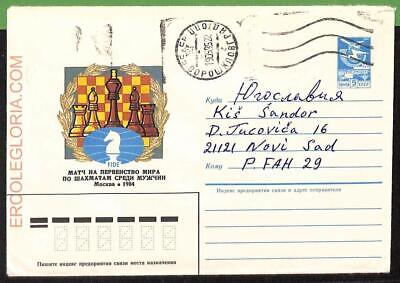 ERCOLEGLORIA.COM
FIDE
МАТЧ НА ПЕРВЕНСТВО МИРА
ПО ШАХМАТАМ СРЕДИ МУЖЧИН
Москва • 1984
ПОЧТА 5 СССР
Куда Югославия
Kiš Šandor
D. Tucovića 16
21121 Novi Sad
Кому P FAH 29
Индекс предприятия связи и адрес отправителя
Пишите индекс предприятия связи места назначения